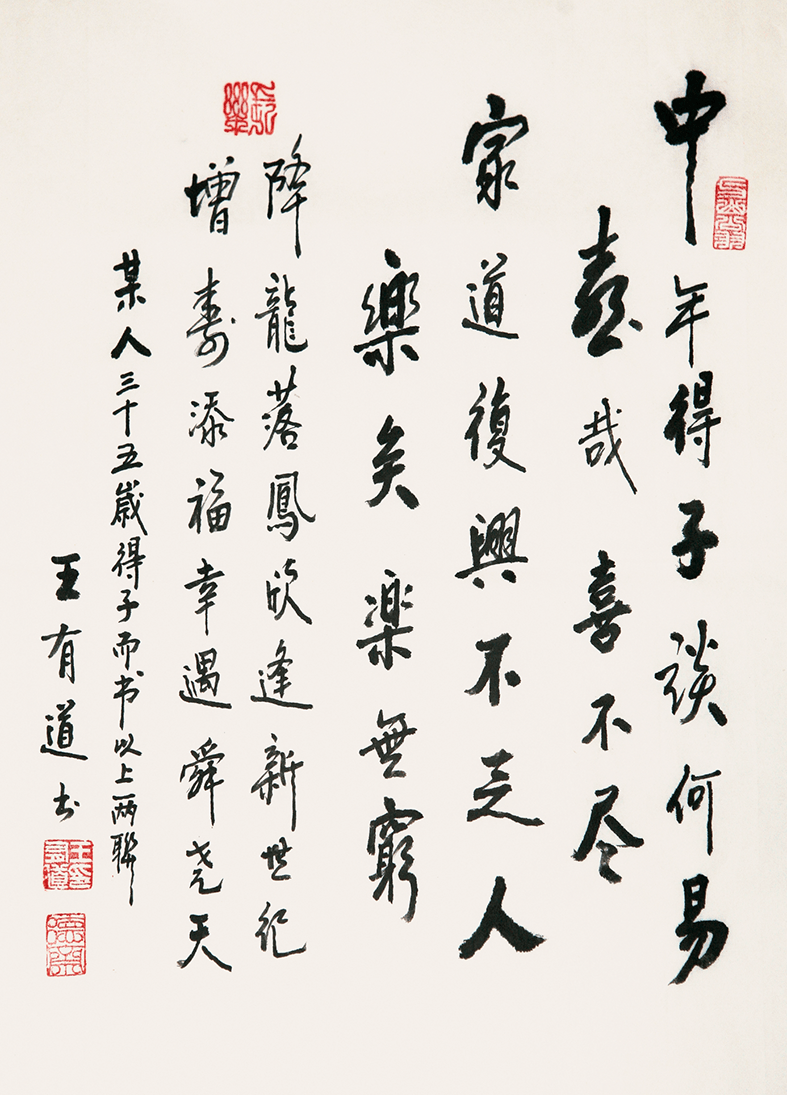 中年得子談何易
憙哉喜不尽
家道復興不乏人
樂矣楽無窮
長樂
降龍落鳳欣逢新世紀
增寿添福幸遇舜尧天
某人三十五歲得子而书以上两聯
王有道书
王有道印